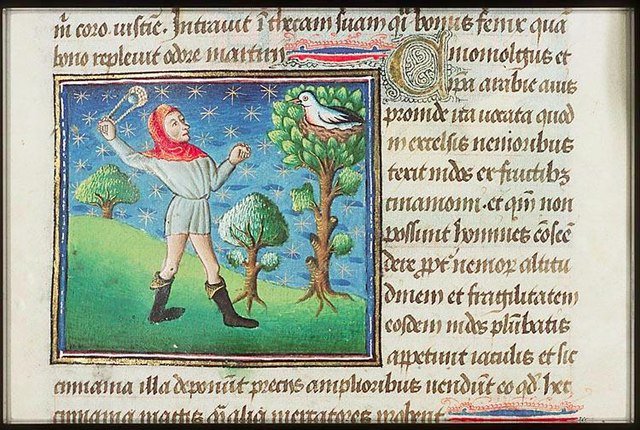 Intrauit ī thecam suam qͥ bonus fenix quā
bono repleuit odore martirii
Cinomolgus et
ipa arabie auis
proinde ita uocata quod
in excelsis nemoribus
texit nidos ex fructibz
cinamomi. et qm̄ non
possunt homines cōscē
dere ppt̄ nemoꝝ altitu
dinem et fragilitatem
eosdem nidos plūbatis
appetunt iaculis et sic
cinnama illa deponūt preciis amplioribus uendūt eo qd̄ hec
cinnama magis alia mercatores probent